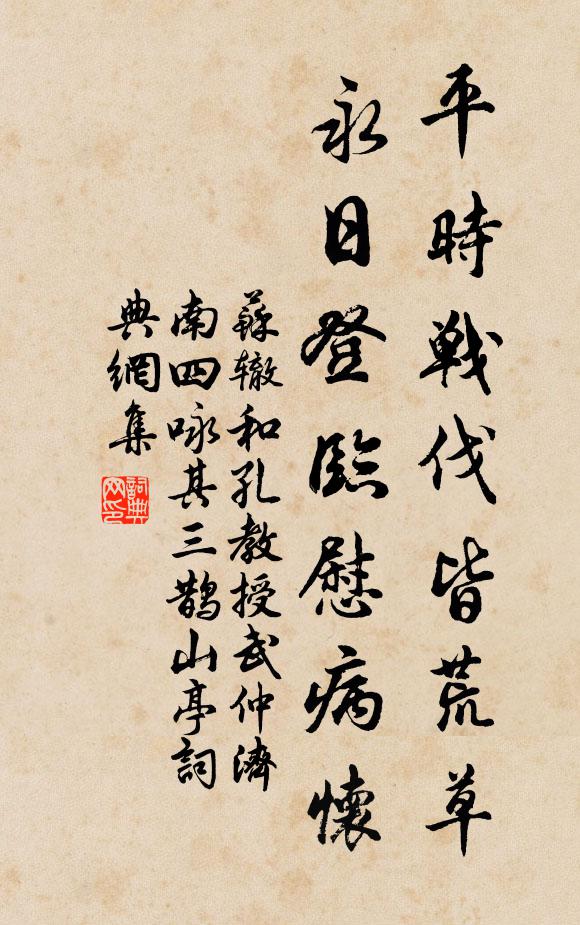 平時戰伐皆荒草
永日登臨慰病懷
蘇辙和孔教授武仲濟
南四咏其三鵲山亭詞
典網集
詞典网印